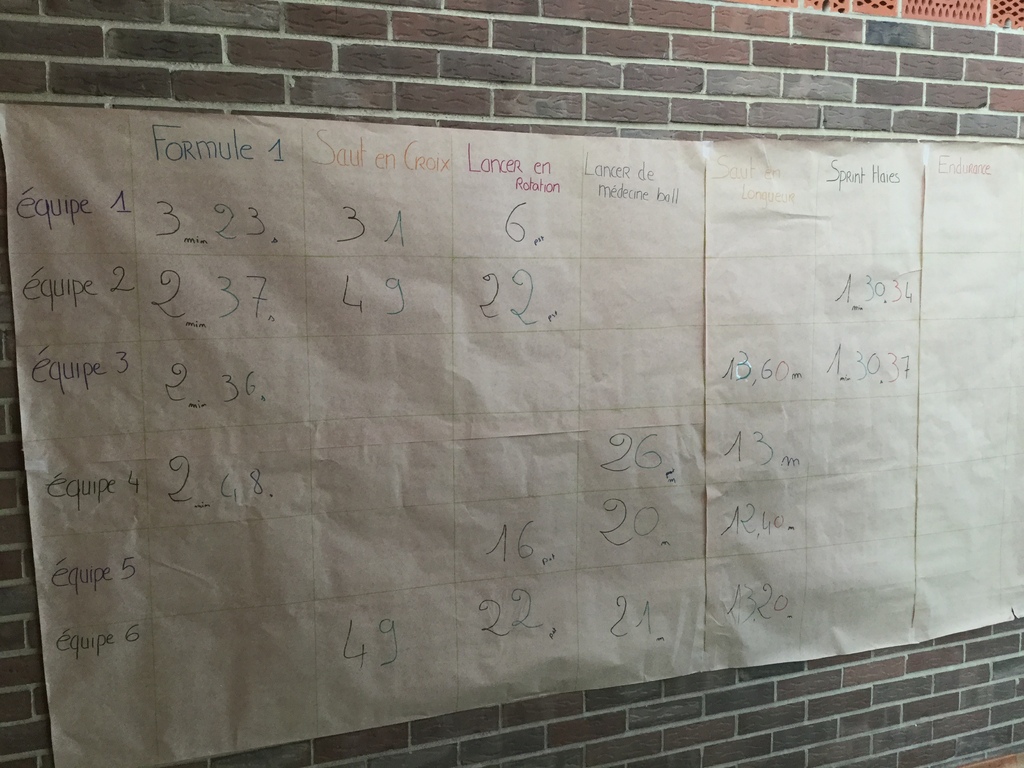 Formule 1 Saut en Croix Lancer en Rotation Lancer de médecine ball Saut en Longueur Sprint Haies Endurance
équipe 1 3 min 23 s 31 6 pst
équipe 2 2 min 37 s 49 22 pst 1 min 30.34
équipe 3 2 min 36 s 13,60 m 1 min 30.37
équipe 4 2 min 48. 26 m 13 m
équipe 5 16 pst 20 m 12,40 m
équipe 6 49 22 pst 21 m 13,20